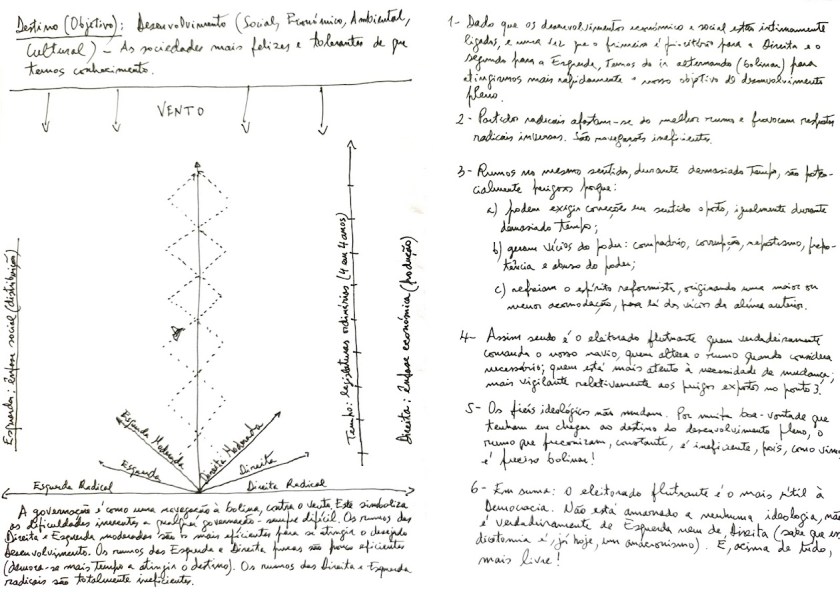 Destino (Objetivo): Desenvolvimento (Social, Económico, Ambiental,
Cultural) – As sociedades mais felizes e tolerantes de que
temos conhecimento.
VENTO
Esquerda: ênfase social (distribuição)
Tempo: legislaturas ordinárias (4 em 4 anos)
Direita: ênfase económica (produção)
Esquerda Moderada
Direita Moderada
Esquerda
Direita
Esquerda Radical
Direita Radical
A governação é como uma navegação à bolina, contra o vento. Este simboliza
as dificuldades inerentes a qualquer governação - sempre difícil. Os rumos das
Direita e Esquerda moderadas são os mais eficientes para se atingir o desejado
desenvolvimento. Os rumos das Esquerda e Direita puras são pouco eficientes
(demora-se mais tempo a atingir o destino). Os rumos das Direita e Esquerda
radicais são totalmente ineficientes.
1- Dado que os desenvolvimentos económico e social estão intimamente
ligados, e uma vez que o primeiro é prioritário para a Direita e o
segundo para a Esquerda, temos de ir alternando (bolinar) para
atingirmos mais rapidamente o nosso objetivo de desenvolvimento
pleno.
2- Partidos radicais afastam-se do melhor rumo e provocam respostas
radicais inversas. São navegações ineficientes.
3- Rumos no mesmo sentido, durante demasiado tempo, são poten-
cialmente perigosos porque:
a) podem exigir correções em sentido oposto, igualmente durante
demasiado tempo;
b) geram vícios do poder: compadrio, corrupção, nepotismo, prepo-
tência e abuso do poder;
c) refreiam o espírito reformista, originando uma maior ou
menor acomodação, para lá dos vícios da alínea anterior.
4- Assim sendo é o eleitorado flutuante quem verdadeiramente
comanda o nosso navio, quem altera o rumo quando considera
necessário; quem está mais atento à necessidade de mudança;
mais vigilante relativamente aos perigos expostos no ponto 3.
5- Os fiéis ideológicos não mudam. Por muita boa-vontade que
tenham em chegar ao destino do desenvolvimento pleno, o
rumo que preconizam, constante, é ineficiente, pois, como vimos
é preciso bolinar!
6- Em suma: O eleitorado flutuante é o mais útil à
Democracia. Não está amarrado a nenhuma ideologia, não
é verdadeiramente de Esquerda nem de Direita (sabe que essa
dicotomia é, já hoje, um anacronismo). É, acima de tudo,
mais livre!